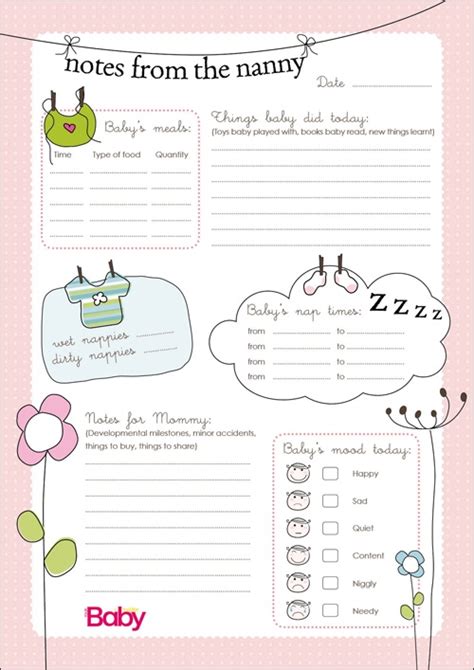 notes from the nanny
Date
Baby's meals:
Time Type of food Quantity
Things baby did today:
(Toys baby played with, books baby read, new things learnt)
wet nappies
dirty nappies
Baby's nap times: zzzz
from to
from to
from to
from to
Notes for Mommy:
(Developmental milestones, minor accidents,
things to buy, things to share)
Baby's mood today:
Happy
Sad
Quiet
Content
Niggly
Needy
Baby